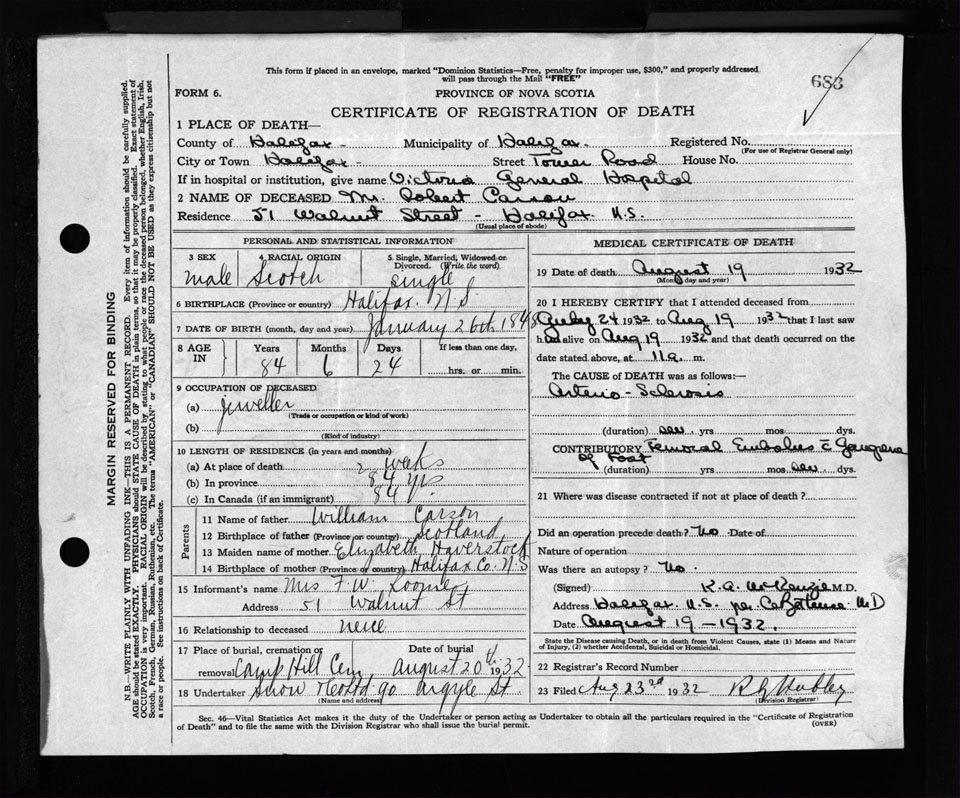 This form if placed in an envelope, marked "Dominion Statistics—Free, penalty for improper use, $300," and properly addressed
will pass through the Mail "FREE"
683
FORM 6.
PROVINCE OF NOVA SCOTIA
CERTIFICATE OF REGISTRATION OF DEATH
1 PLACE OF DEATH—
County of Halifax - Municipality of Halifax - Registered No.
(For use of Registrar General only)
City or Town Halifax - Street Tower Road House No.
If in hospital or institution, give name Victoria General Hospital
2 NAME OF DECEASED Mr. Robert Carson
Residence 51 Walnut Street - Halifax. N.S.
(Usual place of abode)
MARGIN RESERVED FOR BINDING
N.B.—WRITE PLAINLY WITH UNFADING INK—THIS IS A PERMANENT RECORD. Every item of information should be carefully supplied.
AGE should be stated EXACTLY. PHYSICIANS should STATE CAUSE OF DEATH in plain terms, so that it may be properly classified. Exact statement of
OCCUPATION is very important. RACIAL ORIGIN will be described by stating to what people or race the deceased person belonged, whether English, Irish,
Scotch, French, German, Russian, Ruthenian, etc. The terms "AMERICAN" or "CANADIAN" SHOULD NOT BE USED as they express citizenship but not
a race or people. See instructions on back of Certificate.
PERSONAL AND STATISTICAL INFORMATION
3 SEX
male
4 RACIAL ORIGIN
Scotch
5 Single, Married, Widowed or
Divorced. (Write the word)
single
6 BIRTHPLACE (Province or country) Halifax. N.S.
7 DATE OF BIRTH (month, day and year) January 26th 1848
8 AGE IN
Years Months Days If less than one day,
84 6 24 hrs. or min.
9 OCCUPATION OF DECEASED
(a) jeweller
(Trade or occupation or kind of work)
(b)
(Kind of industry)
10 LENGTH OF RESIDENCE (in years and months)
(a) At place of death 2 weeks
(b) In province 84 yrs
(c) In Canada (if an immigrant) 84 y.
Parents
11 Name of father William Carson
12 Birthplace of father (Province or country) Scotland
13 Maiden name of mother Elizabeth Haverstock
14 Birthplace of mother (Province or country) Halifax Co. N.S
15 Informant's name Mrs F. W.
Address 51 Walnut St
16 Relationship to deceased neice
17 Place of burial, cremation or removal Camp Hill Cem
Date of burial August 20th 1932
18 Undertaker Snow & Co Ltd 90 Argyle St.
(Name and address)
MEDICAL CERTIFICATE OF DEATH
19 Date of death August 19 1932
(Month, day and year)
20 I HEREBY CERTIFY that I attended deceased from
24 1932 to Aug 19 1932 that I last saw
h alive on Aug 19 1932 and that death occurred on the
date stated above, at 11 a. m.
The CAUSE of DEATH was as follows:
Arterio-Sclerosis
(duration) sev yrs mos dys.
CONTRIBUTORY Femoral Embolus c̄ Gangrene
of Foot
(duration) yrs mos sev dys.
21 Where was disease contracted if not at place of death?
Did an operation precede death? No Date of
Nature of operation
Was there an autopsy? No.
(Signed) K. A. McKenzie M.D.
Address Halifax. N.S. per M D
Date August 19 - 1932.
State the Disease causing Death, or in death from Violent Causes, state (1) Means and Nature
of Injury, (2) whether Accidental, Suicidal or Homicidal.
22 Registrar's Record Number
23 Filed Aug 23rd 1932
(Division Registrar)
Sec. 46—Vital Statistics Act makes it the duty of the Undertaker or person acting as Undertaker to obtain all the particulars required in the "Certificate of Registration
of Death" and to file the same with the Division Registrar who shall issue the burial permit.
(OVER)